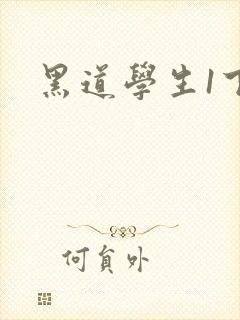 黑道學生1下
何員外